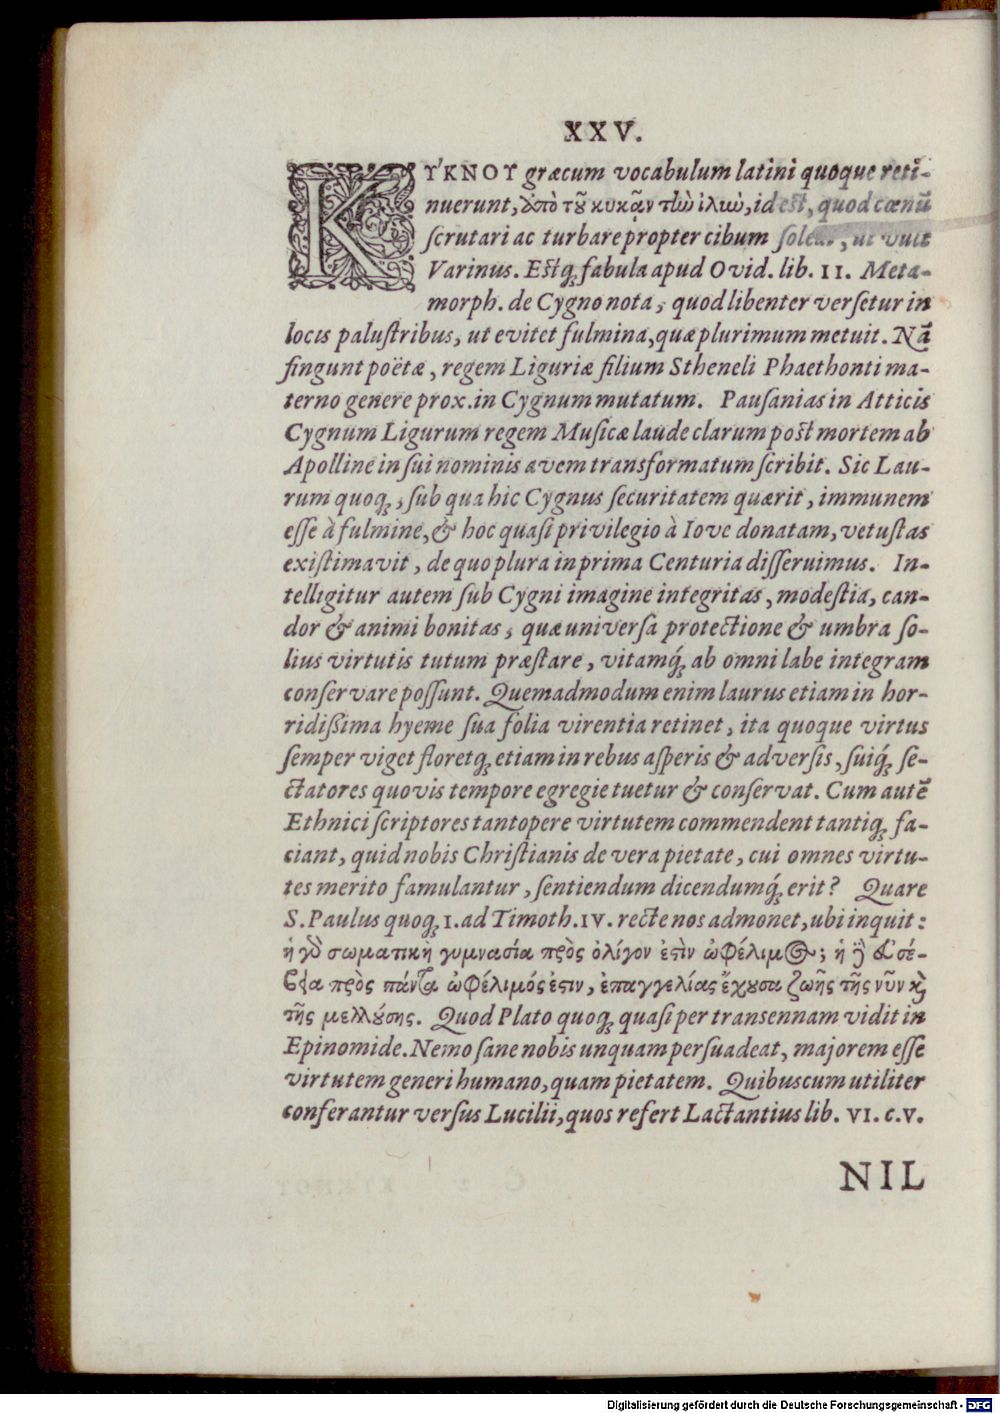 XXV.
KΎΚΝΟΥ græcum vocabulum latini quoque reti-
nuerunt, ἀπὸ τοῦ κυκᾷν τὴν ἰλιὺ, id est, quod cœnū
scrutari ac turbare propter cibum soleat, ut vult
Varinus. Estq; fabula apud Ovid. lib. II. Meta-
morph. de Cygno nota, quod libenter versetur in
locis palustribus, ut evitet fulmina, quæ plurimum metuit. Nã
fingunt poëtæ, regem Liguriæ filium Stheneli Phaethonti ma-
terno genere prox. in Cygnum mutatum. Pausanias in Atticis
Cygnum Ligurum regem Musicæ laude clarum post mortem ab
Apolline in sui nominis avem transformatum scribit. Sic Lau-
rum quoq;, sub qua hic Cygnus securitatem quærit, immunem
esse à fulmine, & hoc quasi privilegio à Iove donatam, vetustas
existimavit, de quo plura in prima Centuria disseruimus. In-
telligitur autem sub Cygni imagine integritas, modestia, can-
dor & animi bonitas, quæ universa protectione & umbra so-
lius virtutis tutum præstare, vitamq́; ab omni labe integram
conservare possunt. Quemadmodum enim laurus etiam in hor-
ridißima hyeme sua folia virentia retinet, ita quoque virtus
semper viget floretq; etiam in rebus asperis & adversis, suiq́; se-
ctatores quovis tempore egregie tuetur & conservat. Cum autē
Ethnici scriptores tantopere virtutem commendent tantiq; fa-
ciant, quid nobis Christianis de vera pietate, cui omnes virtu-
tes merito famulantur, sentiendum dicendumq́; erit? Quare
S. Paulus quoq; I. ad Timoth. IV. recte nos admonet, ubi inquit:
ἡ γὸ σωματικὴ γυμνασία πρὸς ὀλίγον ἐστὶν ὠφέλιμος; ἡ ἢ εὐσέ-
βεια πρὸς πάντα ὠφέλιμός ἐστιν, ἐπαγγελίας ἔχουσα ζωῆς τῆς νῦν κὶ
τῆς μελλούσης. Quod Plato quoq; quasi per transennam vidit in
Epinomide. Nemo sane nobis unquam persuadeat, majorem esse
virtutem generi humano, quam pietatem. Quibuscum utiliter
conferantur versus Lucilii, quos refert Lactantius lib. VI. c. V.
NIL
Digitalisierung gefördert durch die Deutsche Forschungsgemeinschaft - DFG